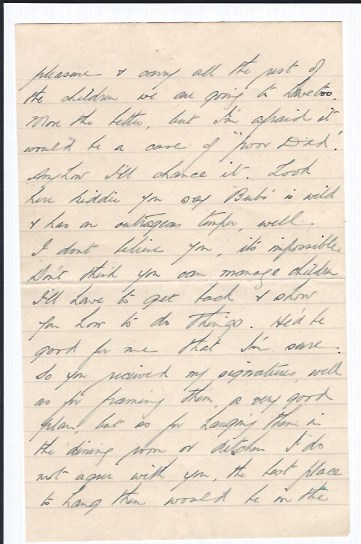 pleasure & carry all the rest of
the children we are going to have too.
More the better, but I'm afraid it
would be a case of "poor Dad".
Anyhow I'll chance it. Look
here kiddie you say 'Bubs' is wild
& has an outrageous temper, well
I dont believe you, its impossible.
Don't think you can manage children
I'll have to get back & show
you how to do things. He'd be
good for me that I'm sure.
So you received my signatures, well
as for framing them a very good
plan, but as for hanging them in
the dining room or kitchen I do
not agree with you, the best place
to hang them would be in the